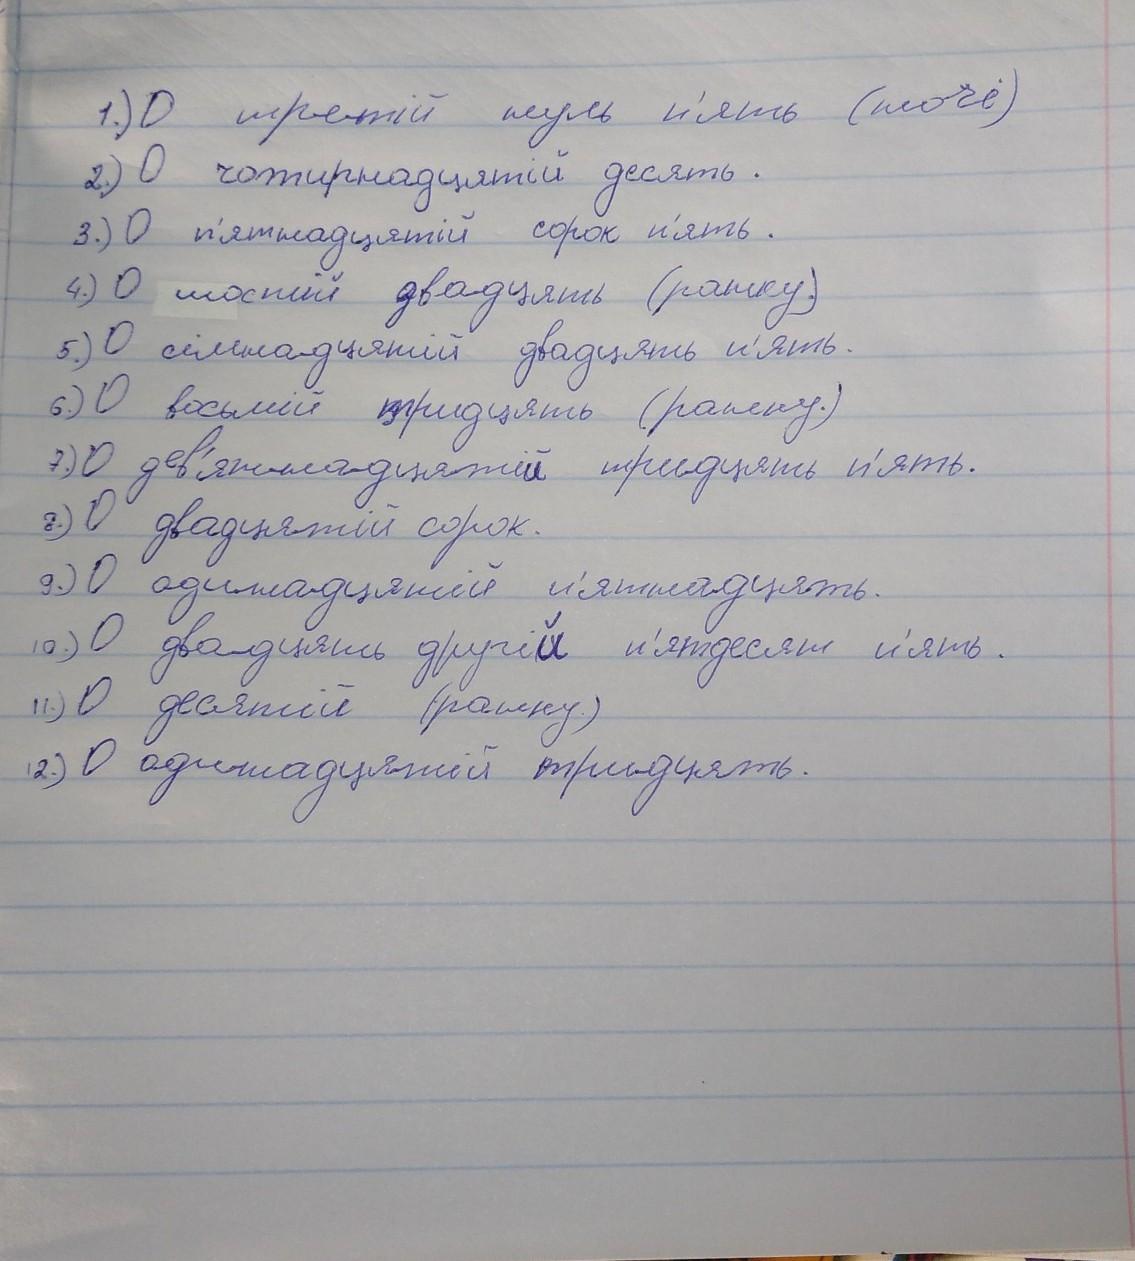 1.) О третій нуль п'ять (ночі)
2.) О чотирнадцятій десять.
3.) О п'ятнадцятій сорок п'ять.
4.) О шостій двадцять (ранку.)
5.) О сімнадцятій двадцять п'ять.
6.) О восьмій тридцять (ранку.)
7.) О дев'ятнадцятій тридцять п'ять.
8.) О двадцятій сорок.
9.) О одинадцятій п'ятнадцять.
10.) О двадцять другій п'ятдесят п'ять.
11.) О десятій (ранку.)
12.) О одинадцятій тридцять.